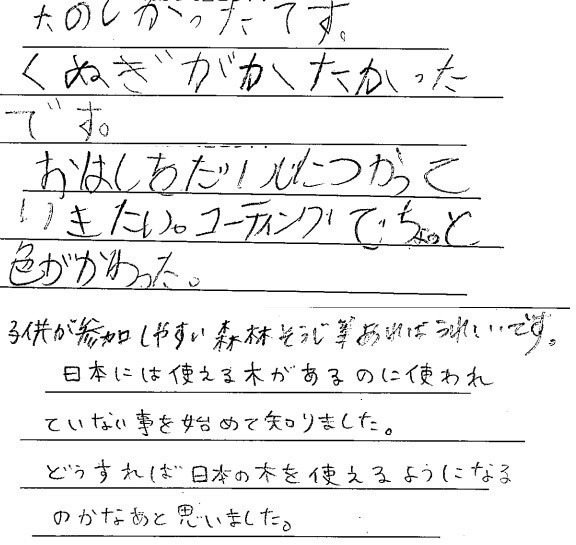 たのしかったです。
くぬぎがかたかった
です。
おはしをだいじにつかって
いきたい。コーティングでちょっと
色がかわった。
子供が参加しやすい森林そうじ等あればうれしいです。
日本には使える木があるのに使われ
ていない事を始めて知りました。
どうすれば日本の木を使えるようになる
のかなあと思いました。